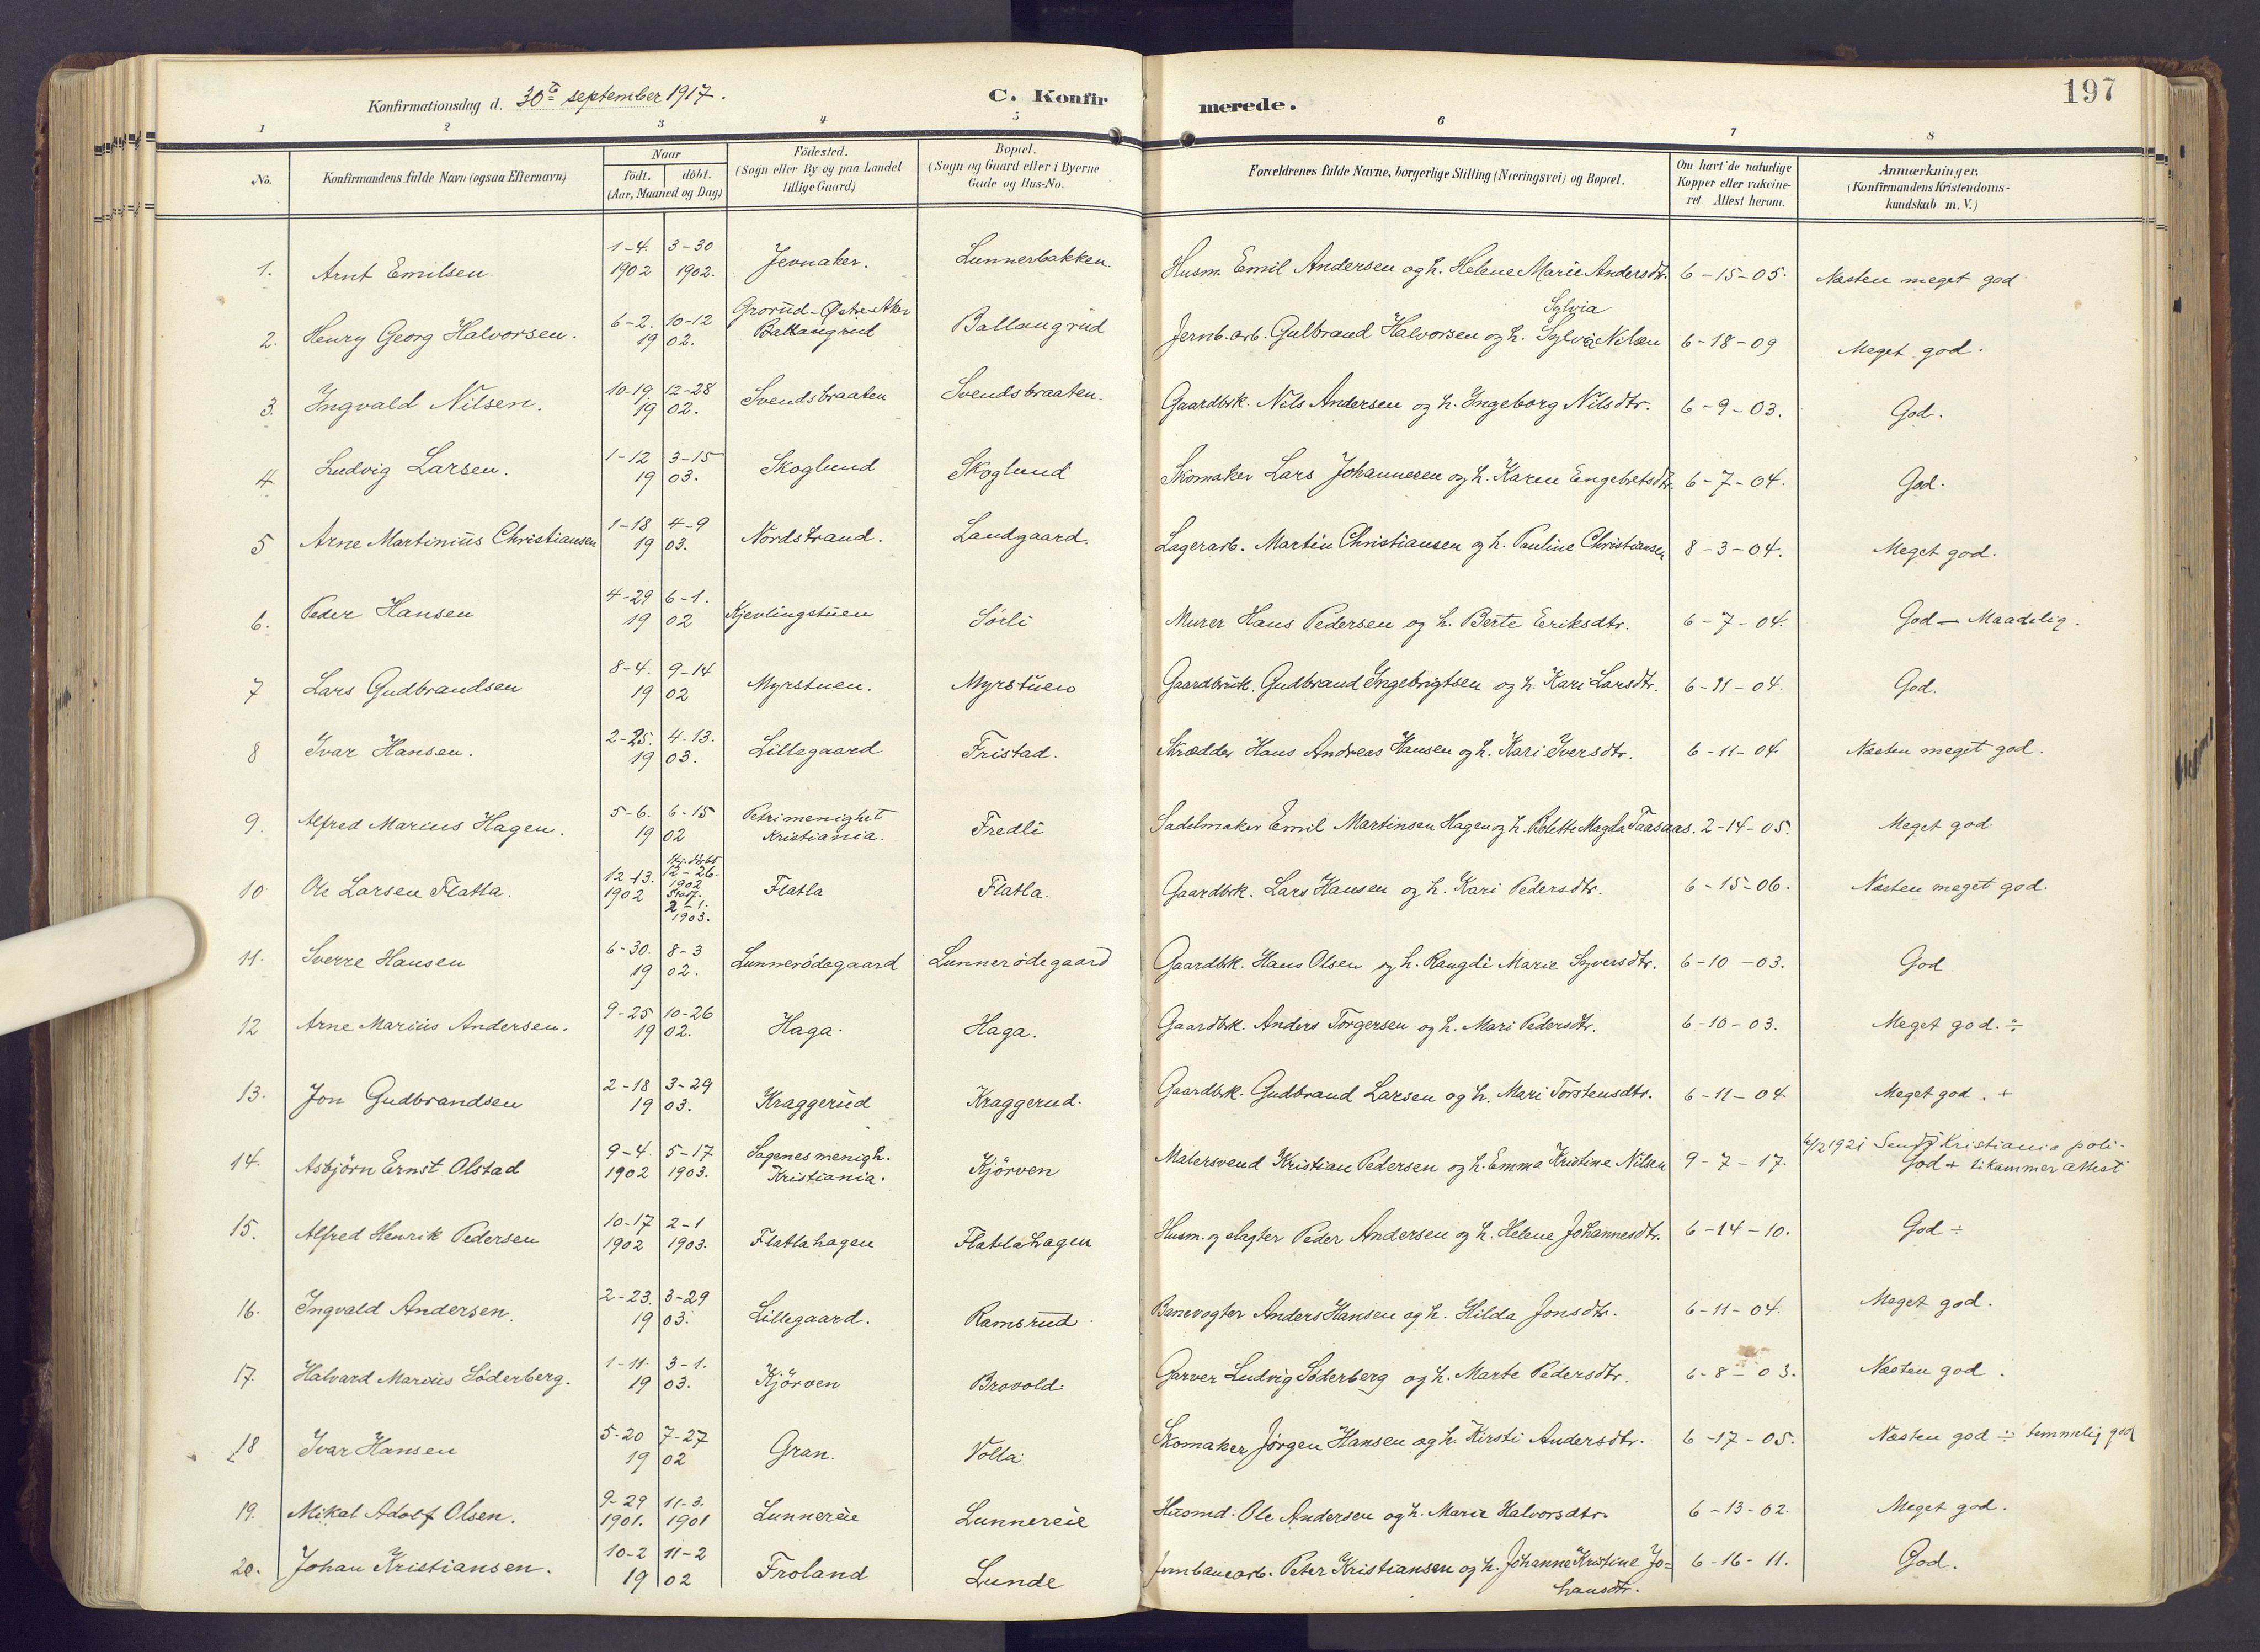 197
Konfirmationsdag d. 30te september 1917.
C. Konfirmerede.
1 2 3 4 5 6 7 8
No. Konfirmandens fulde Navn (ogsaa Efternavn) Naar födt. döbt. (Aar, Maaned og Dag) Födested. (Sogn eller By og paa Landet tillige Gaard) Bopæl. (Sogn og Gaard eller i Byerne Gade og Hus-No. Forældrenes fulde Navne, borgerlige Stilling (Næringsvei) og Bopæl. Om havt de naturlige Kopper eller vakcineret Attest herom. Anmærkninger. (Konfirmandens Kristendomskundskab m. V.)
1. Arnt Emilsen. 1-4. 1902 3-30 1902. Jevnaker. Lunnerbakken. Husm. Emil Andersen og h. Helene Marie Andersdtr. 6-15-05. Næsten meget god
2. Henry Georg Halvorsen. 6-2. 10-12 1902. Grorud-Østre-Aker Ballangrud Ballangrud Jernb. arb. Gulbrand Halvorsen og h. Sylvia Nilsen Sylvia 6-18-09 Meget god.
3. Ingvald Nilsen. 10-19. 12-28 1902. Svendsbraaten Svendsbraaten. Gaardbrk. Nils Andersen og h. Ingeborg Nilsdtr. 6-9-03. God.
4. Ludvig Larsen. 1-12 3-15 1903. Skoglund Skoglund Skomaker Lars Johannesen og h. Karen Engebretsdtr. 6-7-04. God.
5 Arne Martinius Christiansen 1-18 4-9 1903. Nordstrand. Landgaard. Lagerarb. Martin Christiansen og h. Pauline Christiansen 8-3-04. Meget god.
6. Peder Hansen 4-29 6-1. 1902 Kjevlingstuen Sörli Murer Hans Pedersen og h. Berte Eriksdtr. 6-7-04. God — Maadelig.
7 Lars Gudbrandsen 8-4. 9-14 1902 Myrstuen. Myrstuen Gaardbruk. Gudbrand Ingebrigtsen og h. Kari Larsdtr. 6-11-04. God.
8 Ivar Hansen. 2-25. 4-13. 1903. Lillegaard Fristad. Skrædder Hans Andreas Hansen og h. Kari Iversdtr. 6-11-04 Næsten meget god.
9. Alfred Marius Hagen. 5-6. 6-15 1902 Petrimenighet Kristiania. Fredli Sadelmaker Emil Martinsen Hagen og h. Rolette Magda Taasaas. 2-14-05. Meget god
10 Ole Larsen Flatla. 12-13. 1902 12-26. 1902 stadf. 2-1. 1903. Flatla Flatla. Gaardbrk. Lars Hansen og h. Kari Pedersdtr. 6-15-06. Næsten meget god.
11. Sverre Hansen 6-30. 8-3 1902. Lunnerödegaard Lunnerödegaard Gaardbk. Hans Olsen og h. Rangdi Marie Syversdtr. 6-10-03. God
12 Arne Marius Andersen. 9-25 10-26 1902. Haga. Haga. Gaardbk. Anders Torgersen og h. Mari Pedersdtr. 6-10-03. Meget god. ÷
13. Jon Gudbrandsen 2-18 3-29 1903. Kraggerud Kraggerud. Gaardbrk. Gudbrand Larsen og h. Mari Torstensdtr. 6-11-04 Meget god. +
14. Asbjörn Ernst Olstad 9-4. 1902 5-17 1903. Sagenes menigh. Kristiania. Kjörven Malersvend Kristian Pedersen og h. Emma Kristine Nilsen 9-7-17. 6/12 1921 Sendt Kristiania poli-
God + tikammer attest
15. Alfred Henrik Pedersen 10-17 1902 2-1 1903. Flatlahagen Flatlahagen Husm. og slagter Peder Andersen og h. Helene Johannesdtr. 6-14-10. God ÷
16. Ingvald Andersen. 2-23. 3-29 1903. Lillegaard. Ramsrud Banevogter Anders Hansen og h. Hilda Jonsdtr. 6-11-04. Meget god.
17. Halvard Marius Söderberg. 1-11. 3-1. 1903. Kjörven Brovold Garver Ludvig Söderberg og h. Marte Pedersdtr. 6-8-03. Næsten god.
18 Ivar Hansen 5-20 7-27 1902 Gran. Volla Skomaker Jörgen Hansen og h. Kirsti Andersdtr. 6-17-05. Næsten god ÷ temmelig god
19. Mikal Adolf Olsen. 9-29 1901. 11-3. 1901 Lunnereie Lunnereie Husmd. Ole Andersen og h. Marie Halvorsdtr. 6-13-02. Meget god.
20. Johan Kristiansen. 10-2 11-2 1902 Froland Lunde Jernbanearb. Peter Kristiansen og h. Johanne Kristine Jo=
hansdtr. 6-16-11. God.